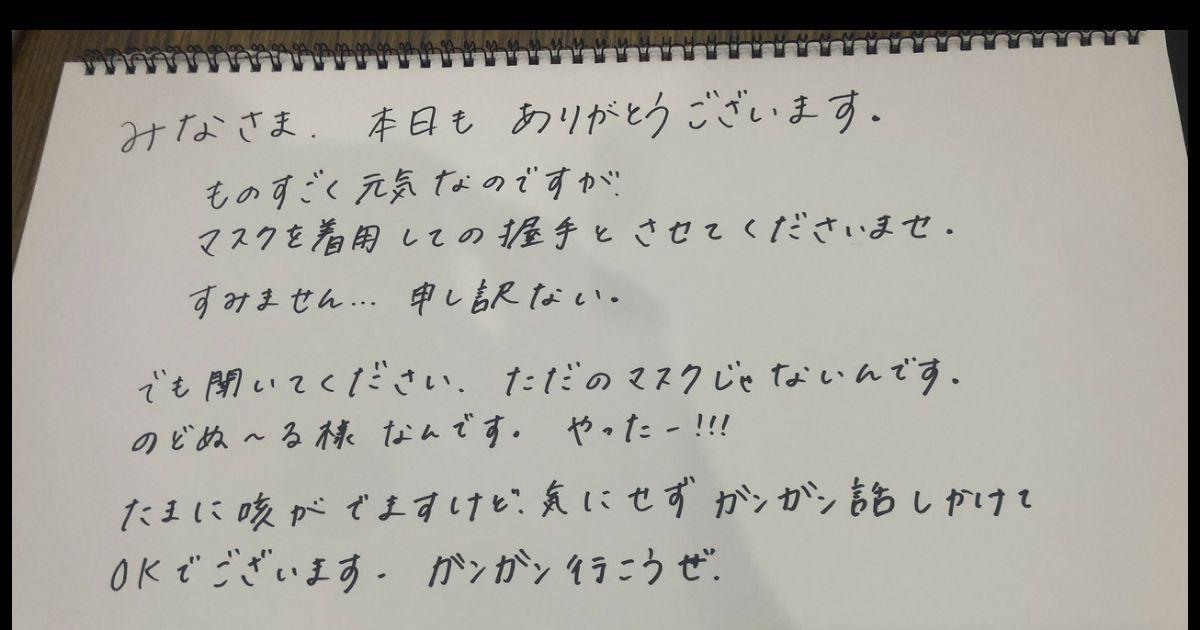 みなさま. 本日も ありがとうございます。
ものすごく元気なのですが.
マスクを着用しての握手とさせてくださいませ.
すみません… 申し訳ない。
でも聞いてください. ただのマスクじゃないんです.
のどぬ〜る様なんです。 やったー!!!
たまに咳がでますけど. 気にせずガンガン話しかけて
OKでございます. ガンガン行こうぜ.